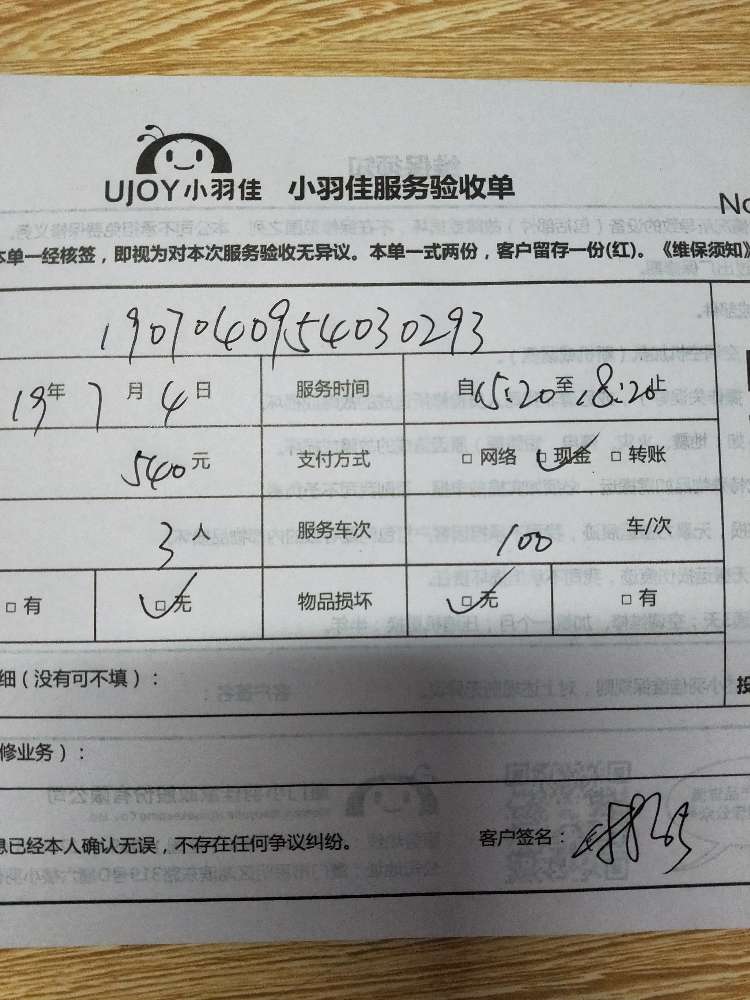 UJOY小羽佳 小羽佳服务验收单
No
本单一经核签，即视为对本次服务验收无异议。本单一式两份，客户留存一份(红)。《维保须知》
1907040954030293
19年7月4日 服务时间 自15:20至18:20止
540元 支付方式 □网络 ☑现金 □转账
3人 服务车次 100 车/次
□有 ☑无 物品损坏 ☑无 □有
细（没有可不填）：
修业务）：
息已经本人确认无误，不存在任何争议纠纷。 客户签名：